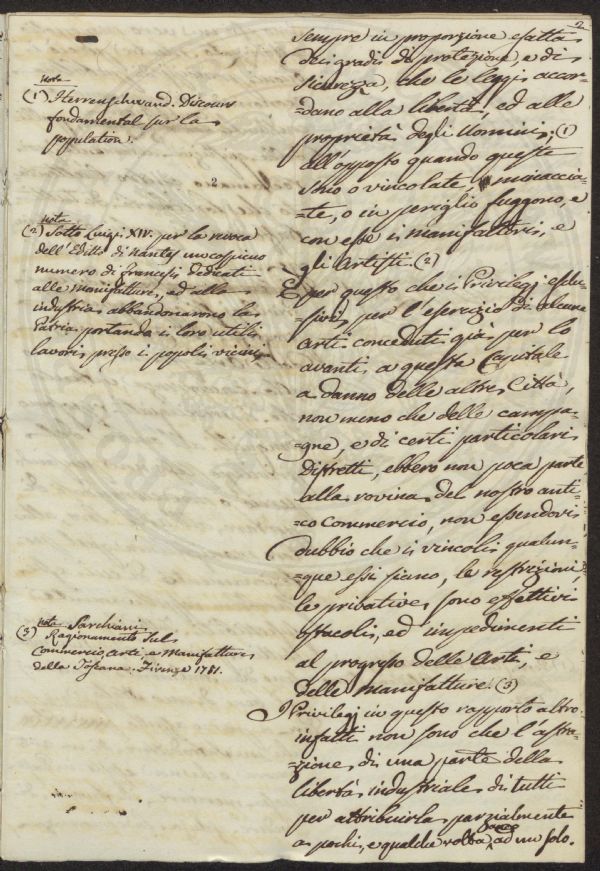 2
sempre in proporzione esatta
dei gradi di protezione, e di
sicurezza, che le leggi accor=
=dano alla libertà, ed alle
proprietà degli Uomini; (1)
all'opposto quando queste
sino o vincolate, minaccia=
=te, o in periglio fuggono, e
con esse i manifattori, e
gli Artisti. (2)
È per questo che i Privilegj esclu=
sivi per l'esercizio di alcune
arti conceduti già per lo
avanti a questa Capitale
a danno delle altre Città,
non meno che delle campa=
=gne, e di certi particolari
Distretti, ebbero non poca parte
alla rovina del nostro anti=
=co Commercio, non essendovi
dubbio che i vincoli qualun=
=que essi siano, le restrizioni,
le privative sono effettivi
ostacoli, ed impedimenti
al progresso delle Arti, e
delle manifatture. (3)
I Privilegj in questo rapporto altro
infatti non sono che l'astra=
=zione di una parte della
libertà industriale di tutti
per attribuirla parzialmente
a pochi, e qualche volta anco ad un solo.
nota
(1) Herrenschwand. Discours
fondamental sur la
population.
2
nota
(2) Sotto Luigi XIV. per la revoca
dell'Editto di Nantes un cospicuo
numero di Francesi dedicati
alle manifatture, ed alla
industria abbandonarono la
Patria portando i loro utili
lavori presso i popoli vicini.
nota
(3) Sarchiani
Ragionamento sul
Commercio, arti e manifatture
della Toscana. Firenze 1781.